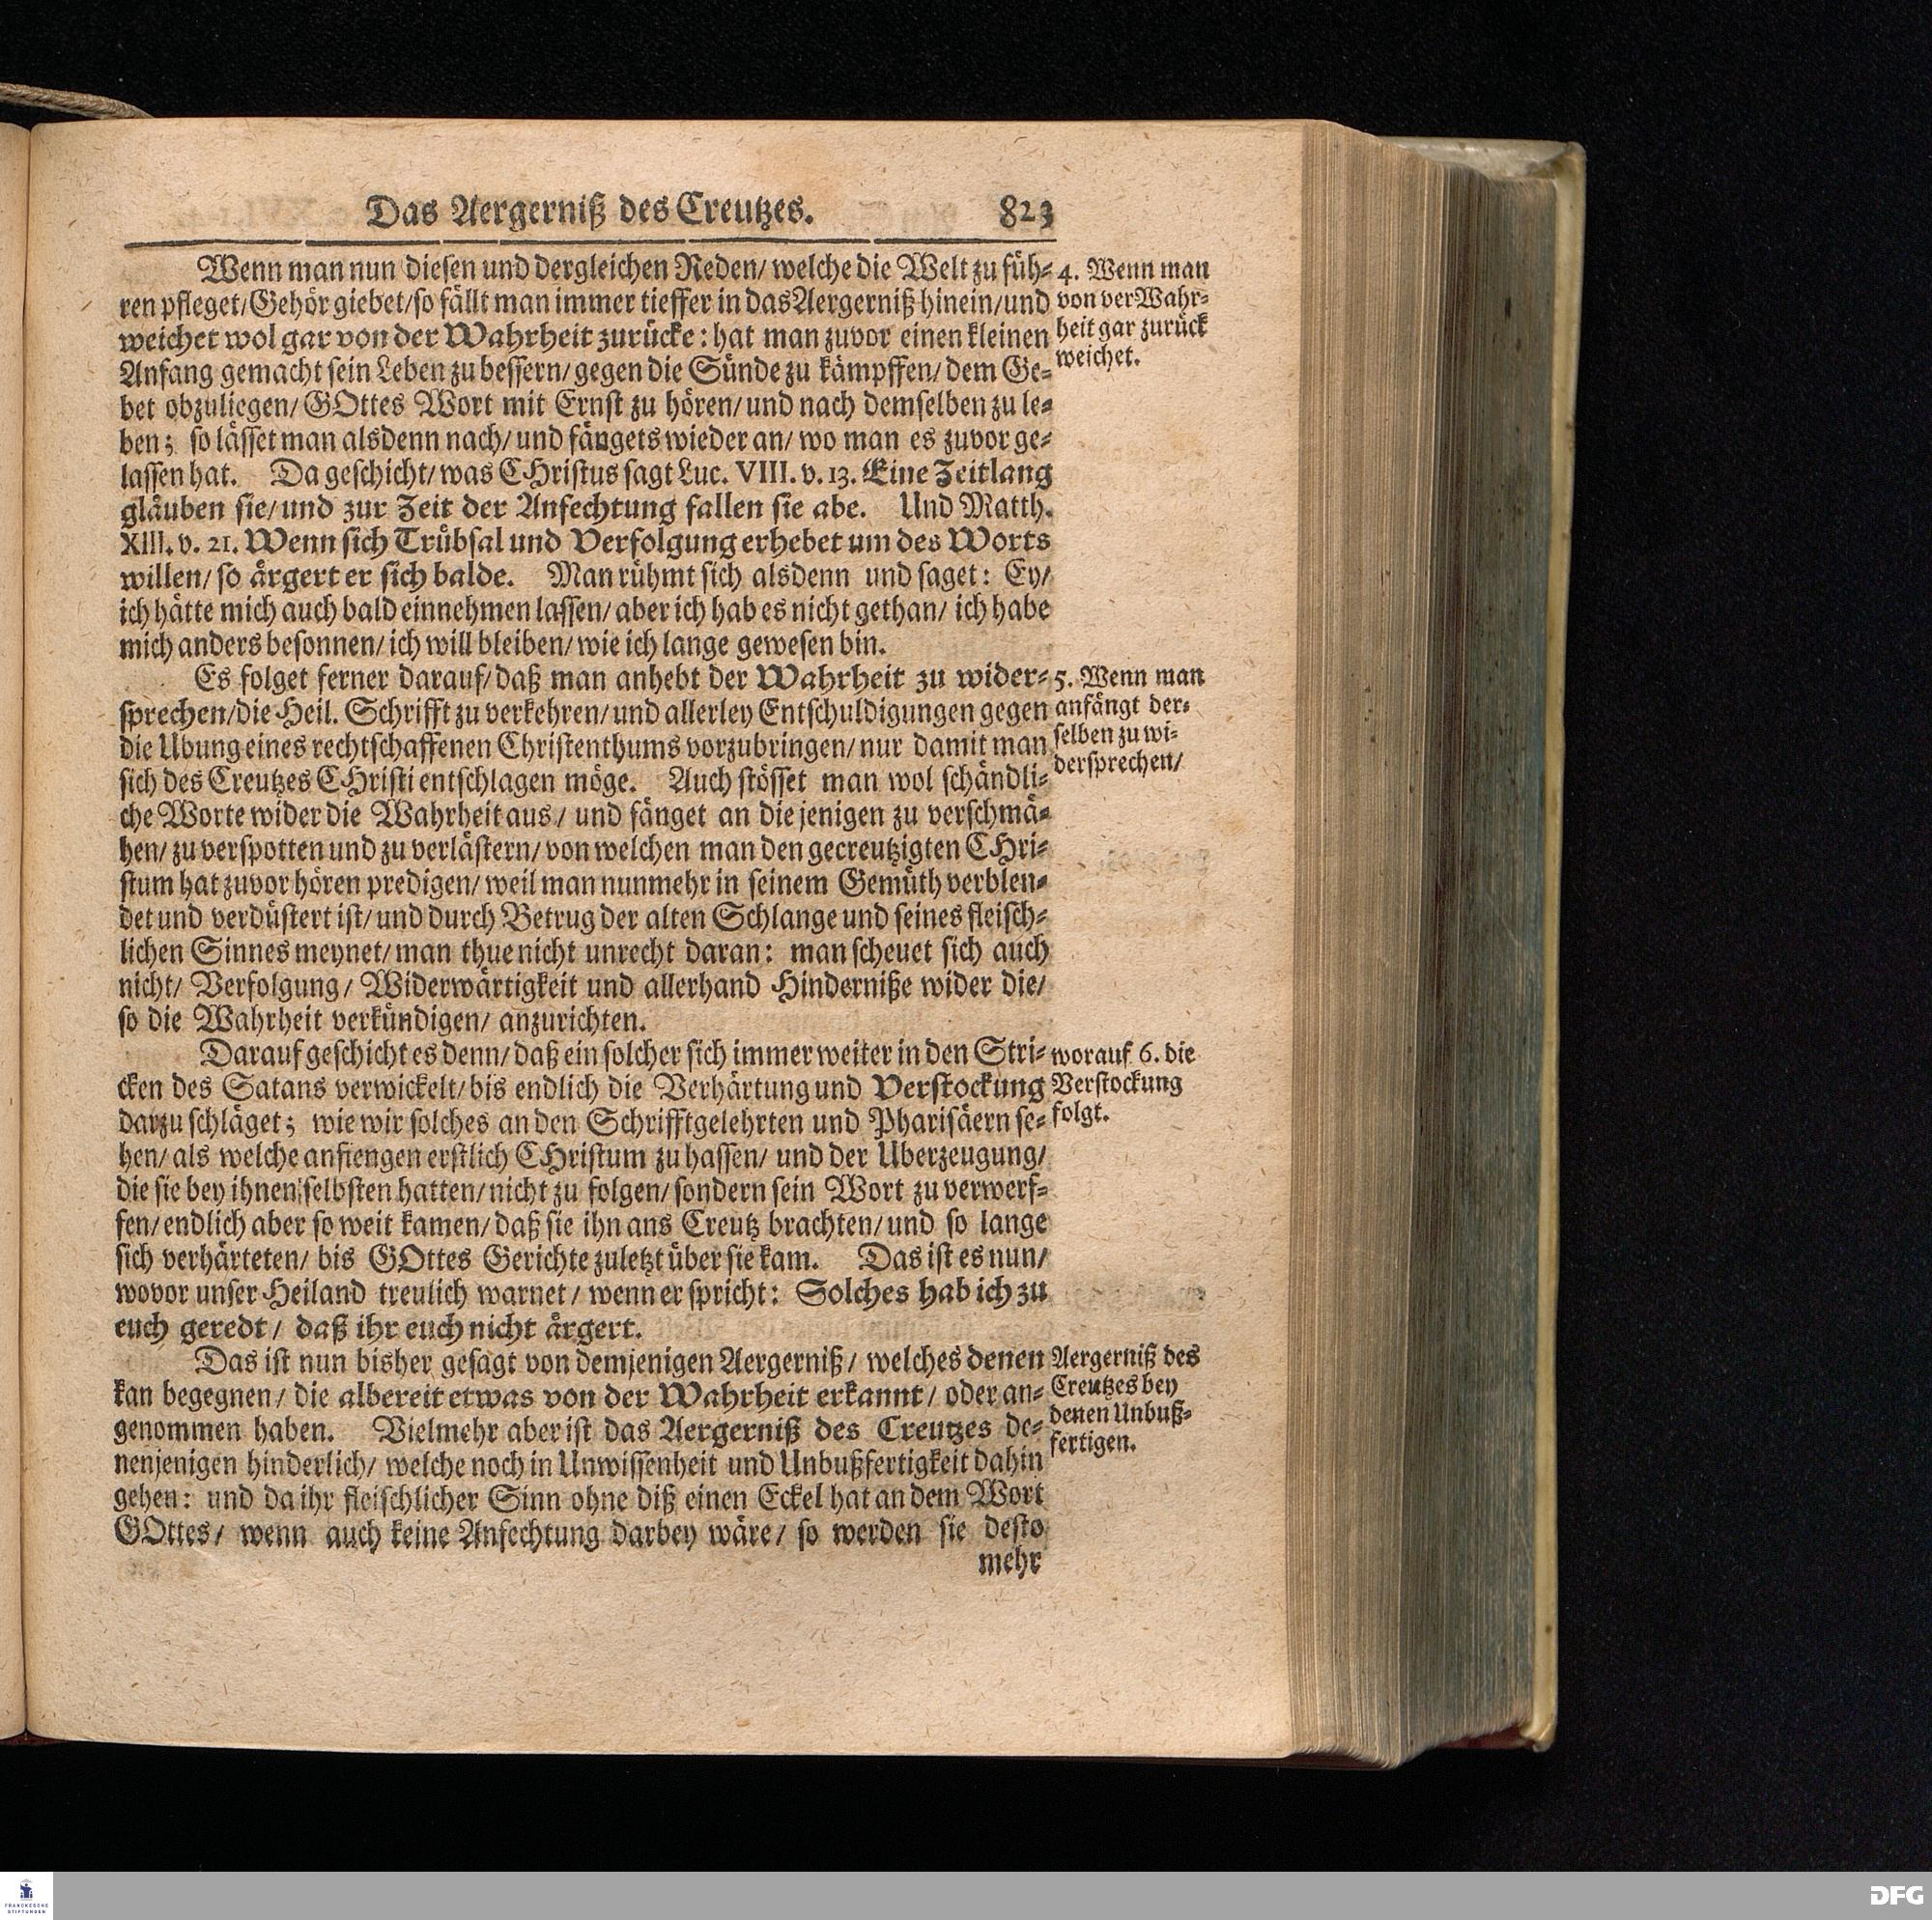 Das Aergerniß des Creutzes. 823
Wenn man nun diesen und dergleichen Reden/ welche die Welt zu füh-
ren pfleget/ Gehör giebet/ so fällt man immer tieffer in das Aergerniß hinein/ und
weichet wol gar von der Wahrheit zurücke: hat man zuvor einen kleinen
Anfang gemacht sein Leben zu bessern/ gegen die Sünde zu kämpffen/ dem Ge-
bet obzuliegen/ GOttes Wort mit Ernst zu hören/ und nach demselben zu le-
ben; so lässet man alsdenn nach/ und fängets wieder an/ wo man es zuvor ge-
lassen hat. Da geschicht/ was CHristus sagt Luc. VIII. v. 13. Eine Zeitlang
gläuben sie/ und zur Zeit der Anfechtung fallen sie abe. Und Matth.
XIII. v. 21. Wenn sich Trübsal und Verfolgung erhebet um des Worts
willen/ so ärgert er sich balde. Man rühmt sich alsdenn und saget: Ey/
ich hätte mich auch bald einnehmen lassen/ aber ich hab es nicht gethan/ ich habe
mich anders besonnen/ ich will bleiben/ wie ich lange gewesen bin.
4. Wenn man
von der Wahr-
heit gar zurück
weichet.
Es folget ferner darauf/ daß man anhebt der Wahrheit zu wider-
sprechen/ die Heil. Schrifft zu verkehren/ und allerley Entschuldigungen gegen
die Ubung eines rechtschaffenen Christenthums vorzubringen/ nur damit man
sich des Creutzes CHristi entschlagen möge. Auch stösset man wol schändli-
che Worte wider die Wahrheit aus/ und fänget an die jenigen zu verschmä-
hen/ zu verspotten und zu verlästern/ von welchen man den gecreutzigten CHri-
stum hat zuvor hören predigen/ weil man nunmehr in seinem Gemüth verblen-
det und verdüstert ist/ und durch Betrug der alten Schlange und seines fleisch-
lichen Sinnes meynet/ man thue nicht unrecht daran: man scheuet sich auch
nicht/ Verfolgung/ Widerwärtigkeit und allerhand Hinderniße wider die/
so die Wahrheit verkündigen/ anzurichten.
5. Wenn man
anfängt der-
selben zu wi-
dersprechen/
Darauf geschicht es denn/ daß ein solcher sich immer weiter in den Stri-
cken des Satans verwickelt/ bis endlich die Verhärtung und Verstockung
darzu schläget; wie wir solches an den Schrifftgelehrten und Pharisäern se-
hen/ als welche anfiengen erstlich CHristum zu hassen/ und der Uberzeugung/
die sie bey ihnen selbsten hatten/ nicht zu folgen/ sondern sein Wort zu verwerf-
fen/ endlich aber so weit kamen/ daß sie ihn ans Creutz brachten/ und so lange
sich verhärteten/ bis GOttes Gerichte zuletzt über sie kam. Das ist es nun/
wovor unser Heiland treulich warnet/ wenn er spricht: Solches hab ich zu
euch geredt/ daß ihr euch nicht ärgert.
worauf 6. die
Verstockung
folgt.
Das ist nun bisher gesagt von demjenigen Aergerniß/ welches denen
kan begegnen/ die albereit etwas von der Wahrheit erkannt/ oder an-
genommen haben. Vielmehr aber ist das Aergerniß des Creutzes de-
nenjenigen hinderlich/ welche noch in Unwissenheit und Unbußfertigkeit dahin
gehen: und da ihr fleischlicher Sinn ohne diß einen Eckel hat an dem Wort
GOttes/ wenn auch keine Anfechtung darbey wäre/ so werden sie desto
mehr
Aergerniß des
Creutzes bey
denen Unbuß-
fertigen.
FRANCKESCHE
STIFTUNGEN
DFG